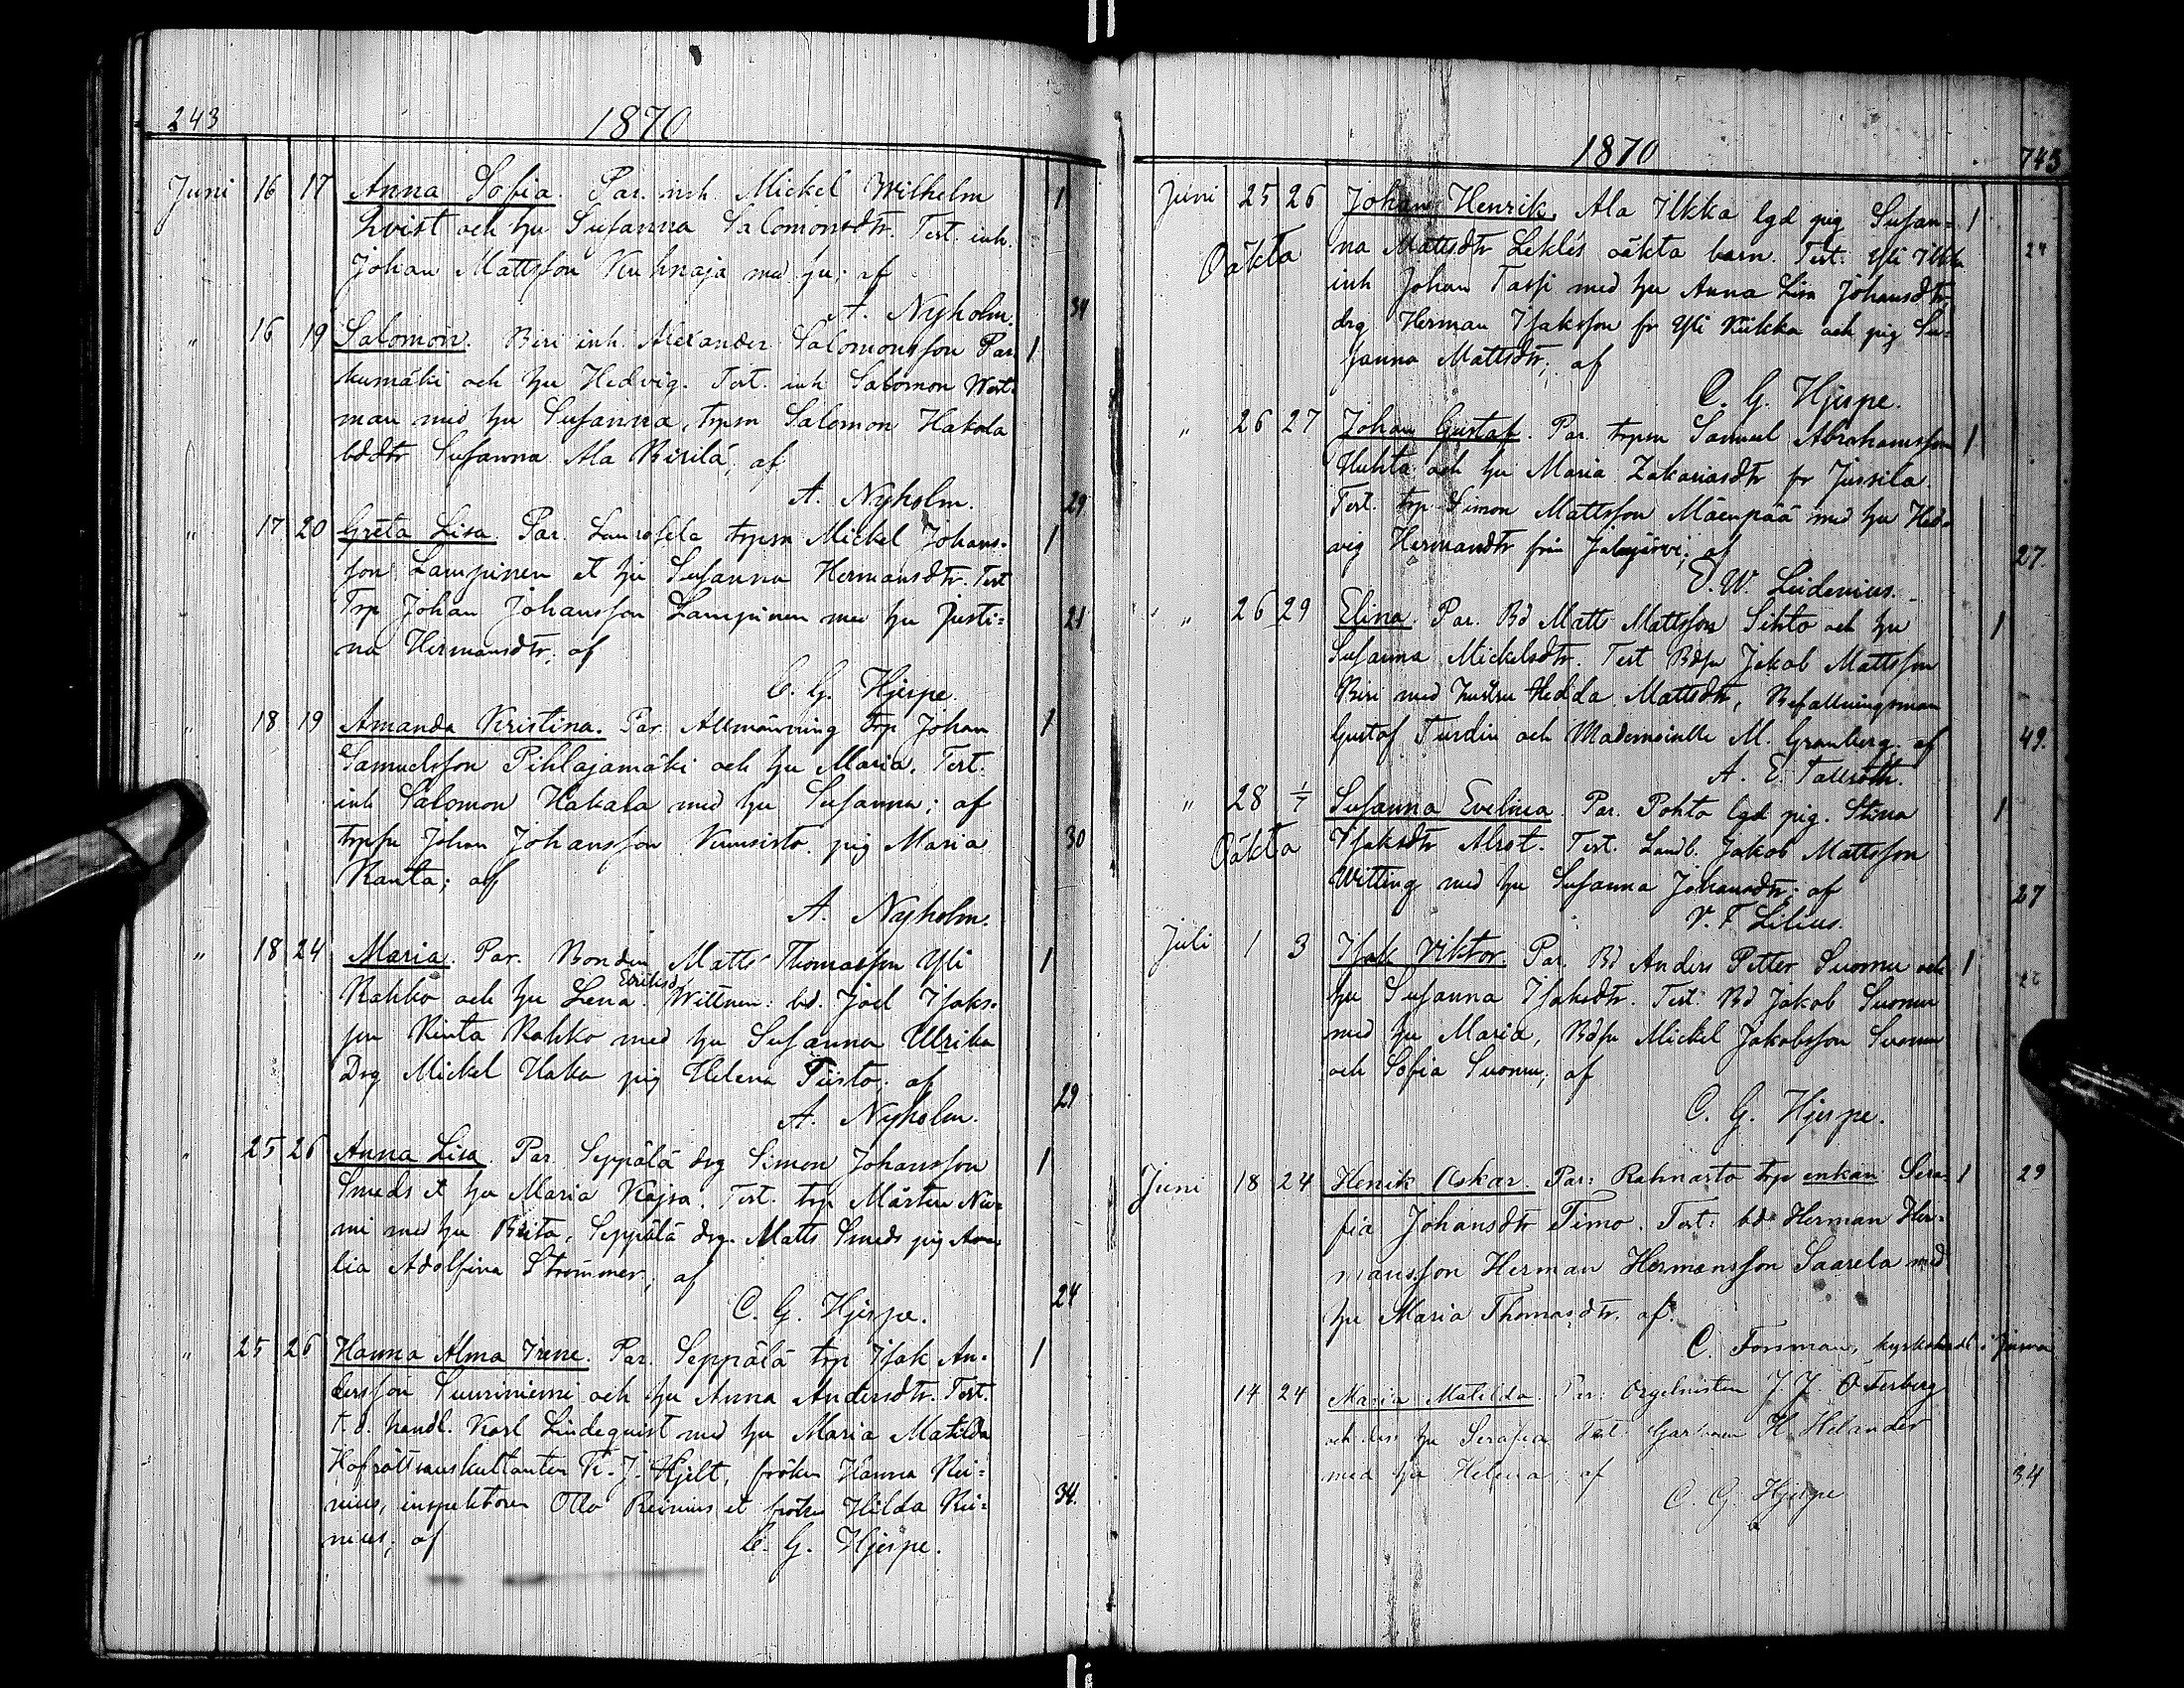 243
1870
Juni 16 17 Anna Sofia. Par. inh. Mickel Wilhelm 1
Qvist och hu Susanna Salomonsdtr. Test. inh.
Johan Mattsson Kuhnaja med hu; af
A. Nyholm. 34
" 16 19 Salomon. Biri inh. Alexander Salomonsson Par= 1
kumäki och hu Hedvig. Test. inh Salomon West=
man med hu Susanna, trpsn Salomon Hakola
bddtr Susanna Ala Birilä; af
A. Nyholm. 29
" 17 20 Greta Lisa. Par. Laurosela trpsn Mickel Johans= 1
son Lampinen et hu Susanna Hermansdtr. Test
Trp Johan Johansson Lampinen med hu Justi= 21
na Hermansdtr; af
C. G. Hjerpe.
" 18 19 Amanda Kristina. Par. Allmänning trp Johan 1
Samuelsson Pihlajamäki och hu Maria. Test.
inh Salomon Hakala med hu Susanna; af
trpsn Johan Johansson Kuusisto, pig Maria 30
Ranta; af
A. Nyholm.
" 18 24 Maria. Par. Bonden Matts Thomasson Yli 1
Rahko och hu Lena Eriksd. Wittnen: bd. Joel Isaks=
son Rinta Rahko med hu Susanna Ulrika
Drg Mickel Haka pig Helena Piisto; af 29
A. Nyholm.
" 25 26 Anna Lisa. Par. Seppälä drg Simon Johansson 1
Smeds et hu Maria Kajsa. Test. trp Mårten Nie=
mi med hu Brita, Seppälä drg. Matts Smeds pig Ama=
lia Adolfina Strömmer; af 24
C. G. Hjerpe.
" 25 26 Hanna Alma Irene. Par. Seppälä trp Isak An= 1
dersson Suuriniemi och hu Anna Andersdtr. Test.
t.d. handl. Karl Lindeqvist med hu Maria Matilda
Hofrättsauskultanten K. J. Hjelt, fröken Hanna Rei=
nius, inspektoren Otto Reinius et fröken Hilda Rei= 34.
nius; af C. G. Hjerpe.
1870 743
Juni 25 26 Johan Henrik, Ala Ilkka lgd pig Susan= 1
Oäkta na Mattsdtr Leklés oäkta barn. Test. Yli Ilkka 24
inh Johan Passi med hu Anna Lisa Johansdtr,
drg Herman Isaksson fr Yli Kiikka och pig Su=
sanna Mattsdtr; af
C. G. Hjerpe.
" 26 27 Johan Gustaf. Par. trpsn Samuel Abrahamsson 1
Huhta och hu Maria Zakariasdtr fr Jussila.
Test. trp Simon Mattsson Mäenpää med hu Hed=
vig Hermansdtr från Jalasjärvi; af 27.
E. W. Lindenius.
" 26 29 Elina. Par. Bd Matts Mattsson Sihto och hu 1
Susanna Mickelsdtr. Test Bdsn Jakob Mattsson
Biri med hustru Hedda Mattsdtr, Befallningsman
Gustaf Turdin och Mademoiselle M. Granberg. af 49.
A. E. Tallroth.
" 28 1/7 Susanna Evelina. Par. Pohto lgd pig. Stina 1
Oäkta Isaksdtr Alrot. Test. Landb. Jakob Mattsson
Witting med hu Susanna Johansdtr; af 27
V. F. Lilius.
Juli 1 3 Isak Viktor. Par. Bd Anders Petter Suomu och 1
hu Susanna Isaksdtr. Test. Bd Jakob Suomu
med hu Maria, Bdsn Mickel Jakobsson Suomu
och Sofia Suomu; af
C. G. Hjerpe.
Juni 18 24 Henrik Oskar. Par: Rahnasto trp enkan Sera= 1 29
fia Johansdtr Timo. Test: bd Herman Her=
mansson Herman Hermansson Saarela med
hu Maria Thomasdtr. af.
C. Forsman, kyrkoherde i Jurva
14 24 Maria Matilda. Par: Orgelnisten J. J. Österberg
och dess hu Serafia Test: Garfvaren H. Helander
med hu Helena; af 34
C. G. Hjerpe